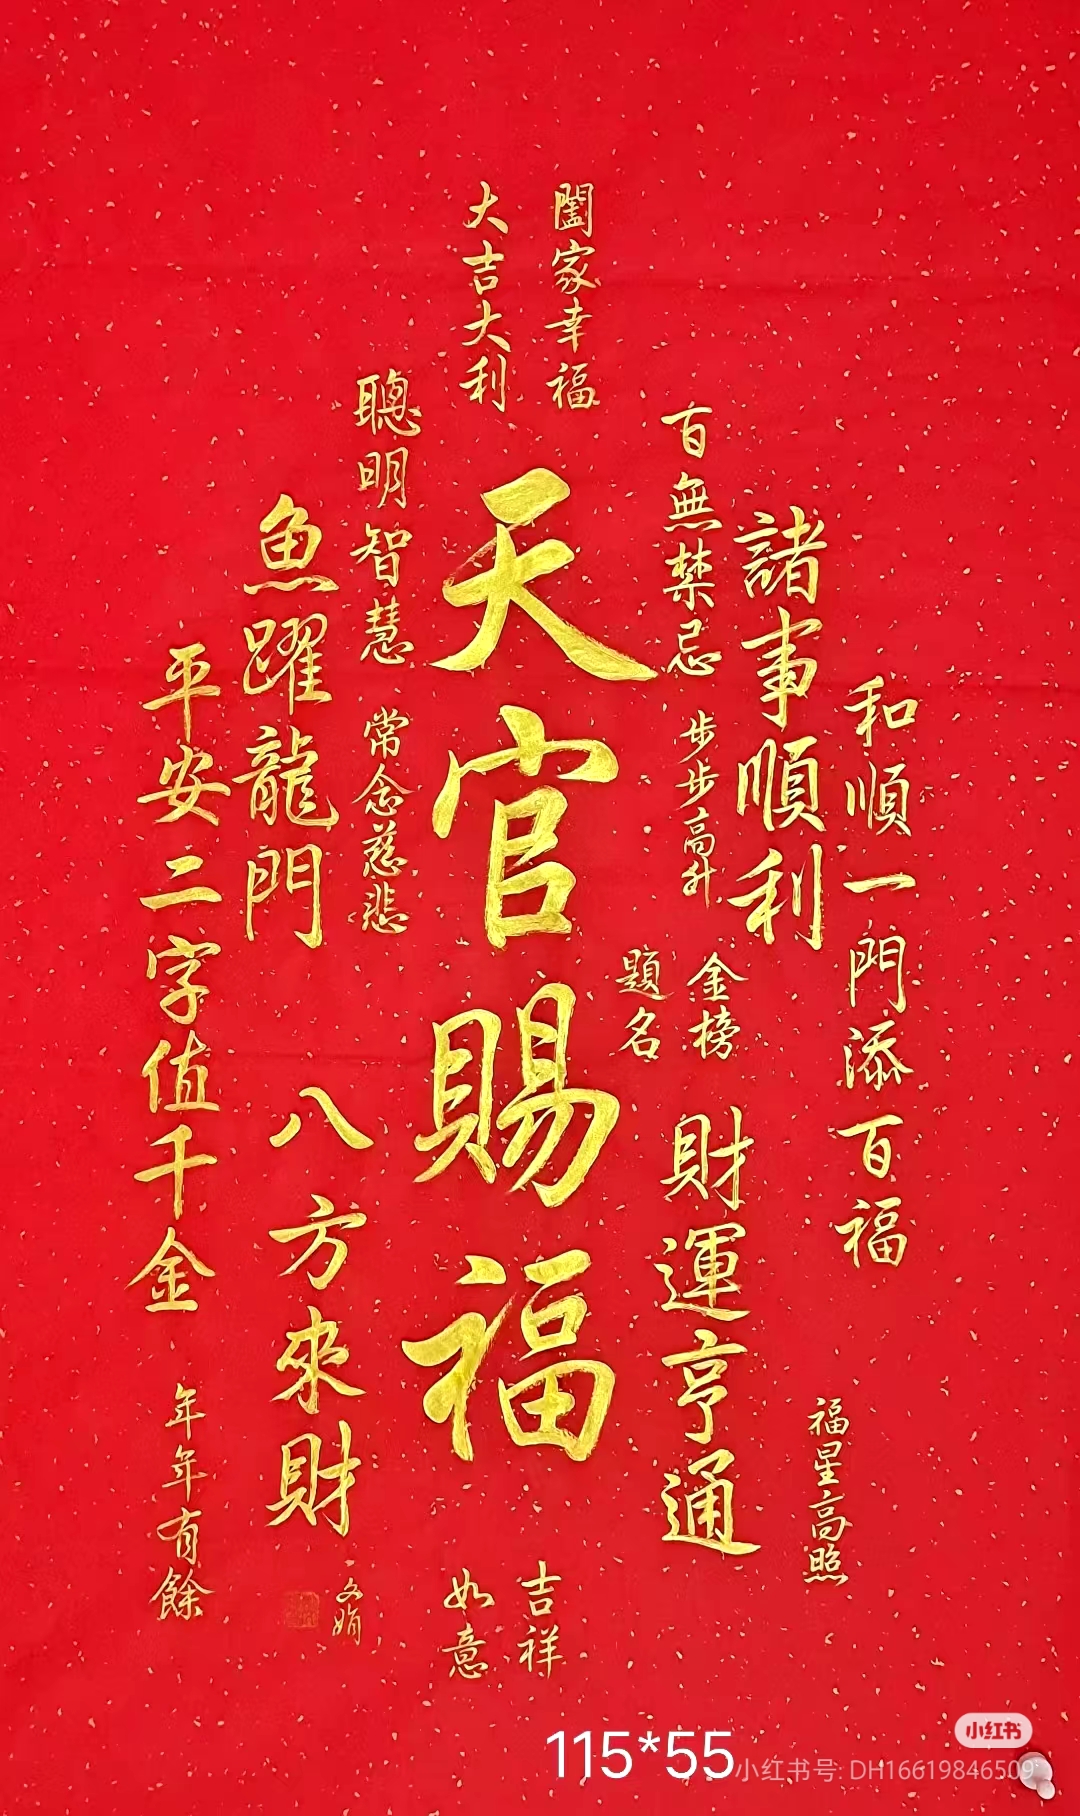 闔家幸福
大吉大利
和順一門添百福
福星高照
諸事順利
百無禁忌
步步高升
金榜
題名
財運亨通
天官賜福
吉祥
如意
聰明智慧
常念慈悲
魚躍龍門
八方來財
文娟
平安二字值千金
年年有餘
115*55
小红书
小红书号: DH16619846509